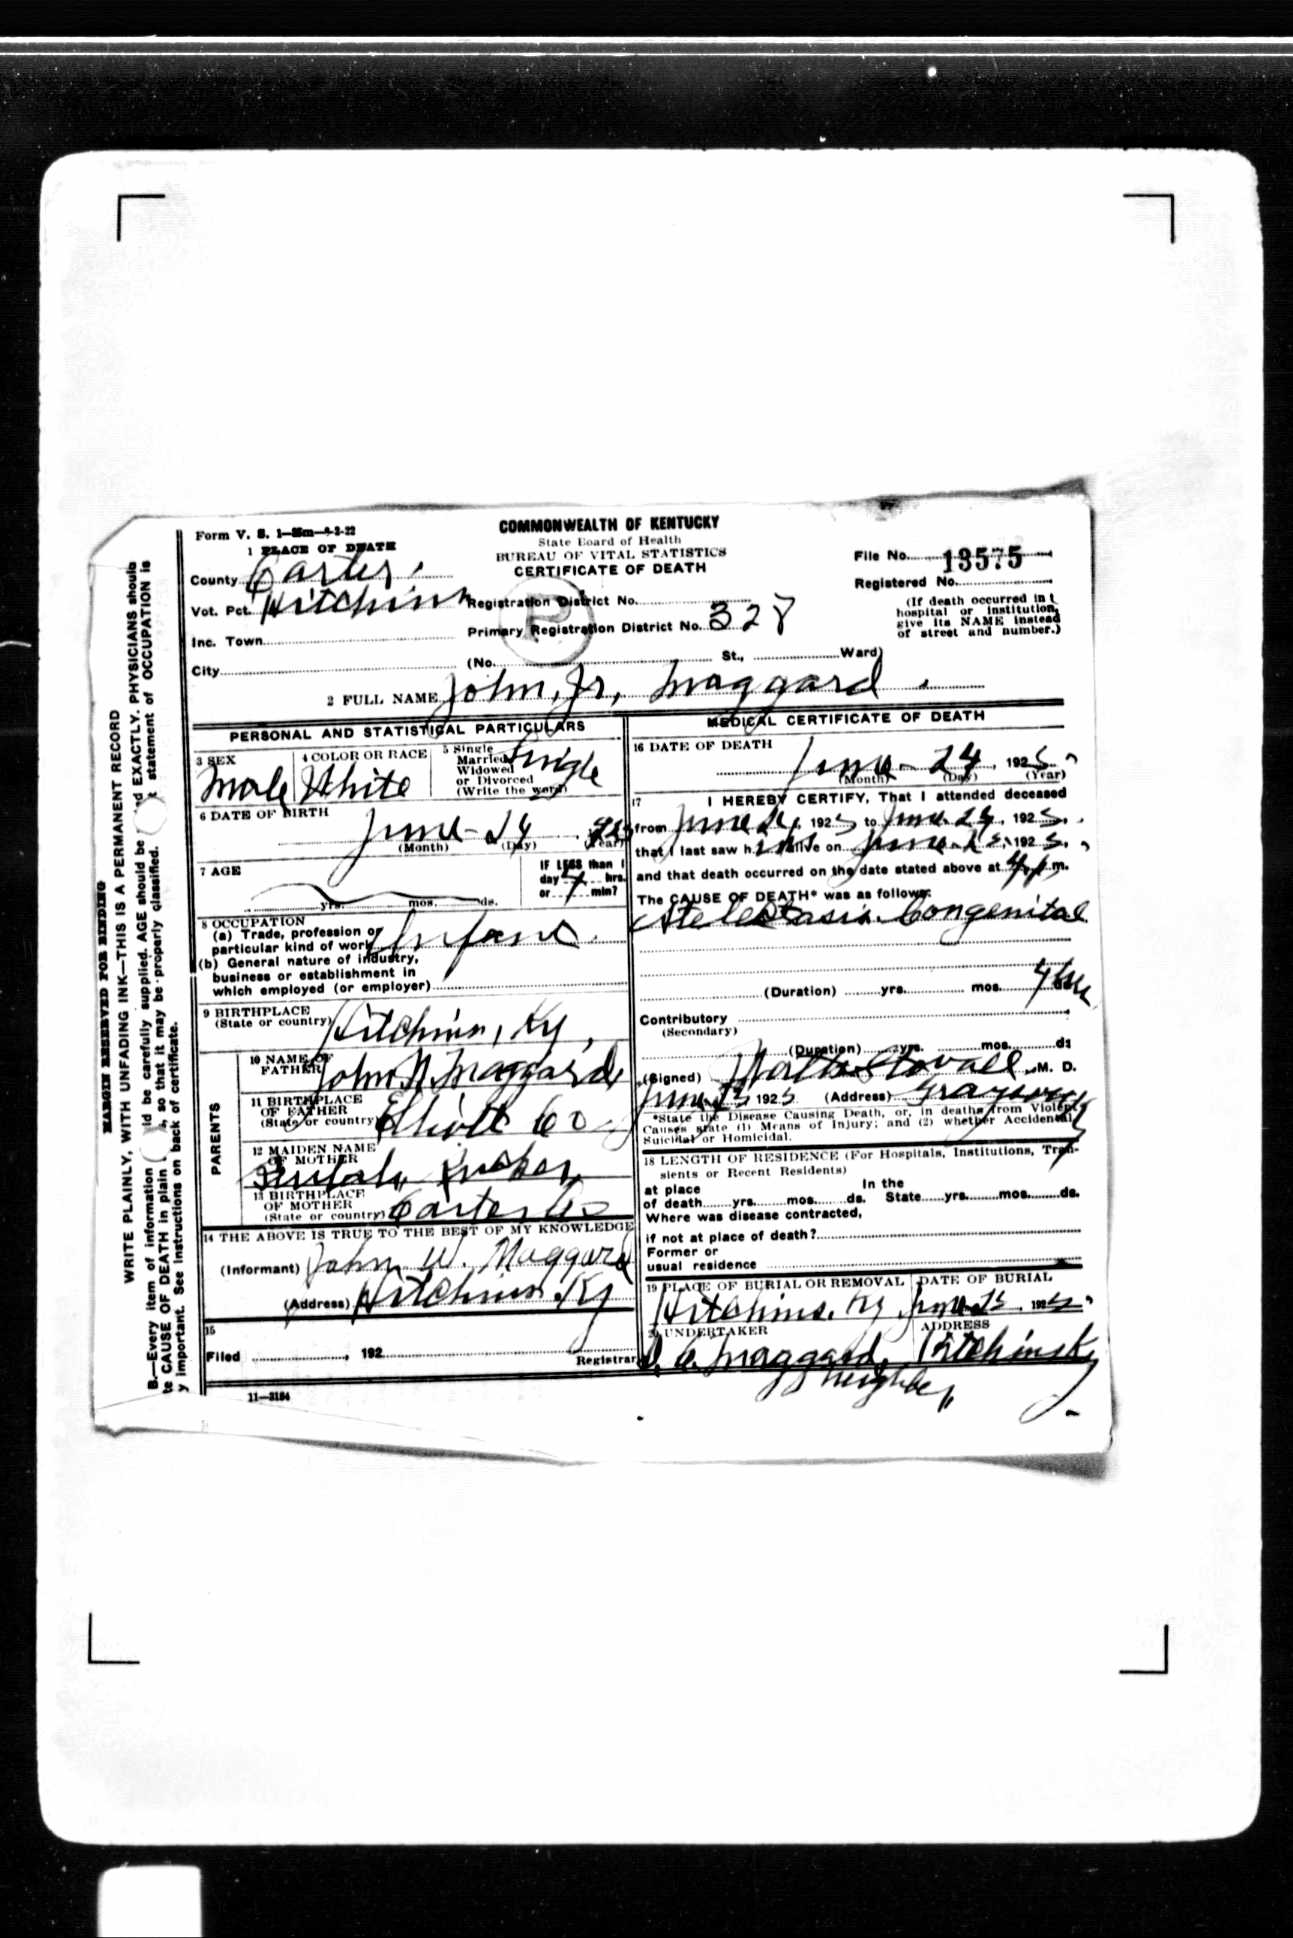 Form V. S. 1—
COMMONWEALTH OF KENTUCKY
State Board of Health
BUREAU OF VITAL STATISTICS
CERTIFICATE OF DEATH
1 PLACE OF DEATH
County Carter.
Vot. Pct. Hitchins
Inc. Town
City
Registration District No.
Primary Registration District No. 328
File No. 13575
Registered No.
(If death occurred in
hospital or institution,
give its NAME instead
of street and number.)
(No. St., Ward)
2 FULL NAME John, Jr, Maggard
PERSONAL AND STATISTICAL PARTICULARS
3 SEX
Male
4 COLOR OR RACE
White
5 Single
Married
Widowed
or Divorced
(Write the word)
Single
6 DATE OF BIRTH
June - 24
(Month) (Day) (Year)
7 AGE
yrs. mos. ds.
IF LESS than 1
day 4 hrs.
or min?
8 OCCUPATION
(a) Trade, profession or
particular kind of work Infant
(b) General nature of industry,
business or establishment in
which employed (or employer)
9 BIRTHPLACE
(State or country) Hitchins, Ky,
PARENTS
10 NAME OF
FATHER John W. Maggard
11 BIRTHPLACE
OF FATHER
(State or country) Elliott Co
12 MAIDEN NAME
OF MOTHER
13 BIRTHPLACE
OF MOTHER
(State or country) Carter Co
14 THE ABOVE IS TRUE TO THE BEST OF MY KNOWLEDGE
(Informant) John W. Maggard
(Address) Hitchins Ky
15
Filed , 192
Registrar
11—3184
MEDICAL CERTIFICATE OF DEATH
16 DATE OF DEATH
June - 24, 1925
(Month) (Day) (Year)
17 I HEREBY CERTIFY, That I attended deceased
from June 24, 1925 to June 24, 1925.
that I last saw him alive on June 1925,
and that death occurred on the date stated above at m.
The CAUSE OF DEATH* was as follows:
Atelectasis Congenital
(Duration) yrs. mos.
Contributory
(Secondary)
(Duration) yrs. mos. ds
(Signed) Stovall M. D.
June 25 1925 (Address) Grayson Ky
*State the Disease Causing Death, or, in deaths from Violent
Causes state (1) Means of Injury; and (2) whether Accidental,
Suicidal or Homicidal.
18 LENGTH OF RESIDENCE (For Hospitals, Institutions, Tran-
sients or Recent Residents)
at place In the
of death yrs. mos. ds. State yrs. mos. ds.
Where was disease contracted,
if not at place of death?
Former or
usual residence
19 PLACE OF BURIAL OR REMOVAL
Hitchins, Ky
DATE OF BURIAL
June 25 1925
20 UNDERTAKER
Maggard,
ADDRESS
Hitchins Ky
MARGIN RESERVED FOR BINDING
WRITE PLAINLY, WITH UNFADING INK—THIS IS A PERMANENT RECORD
B.—Every item of information should be carefully supplied. AGE should be EXACTLY. PHYSICIANS should
CAUSE OF DEATH in plain so that it may be properly classified. statement of OCCUPATION is
important. See instructions on back of certificate.